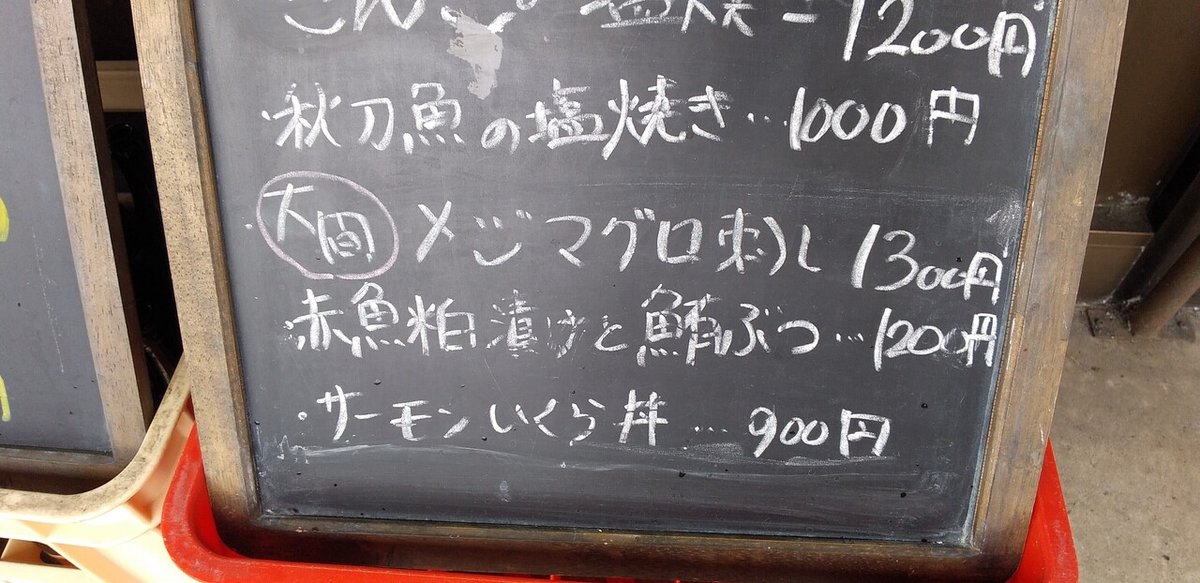 塩焼ー1200円
・秋刀魚の塩焼き…1000円
大間 メジマグロ刺し 1300円
・赤魚粕漬けと鮪ぶつ…1200円
・サーモンいくら丼…900円